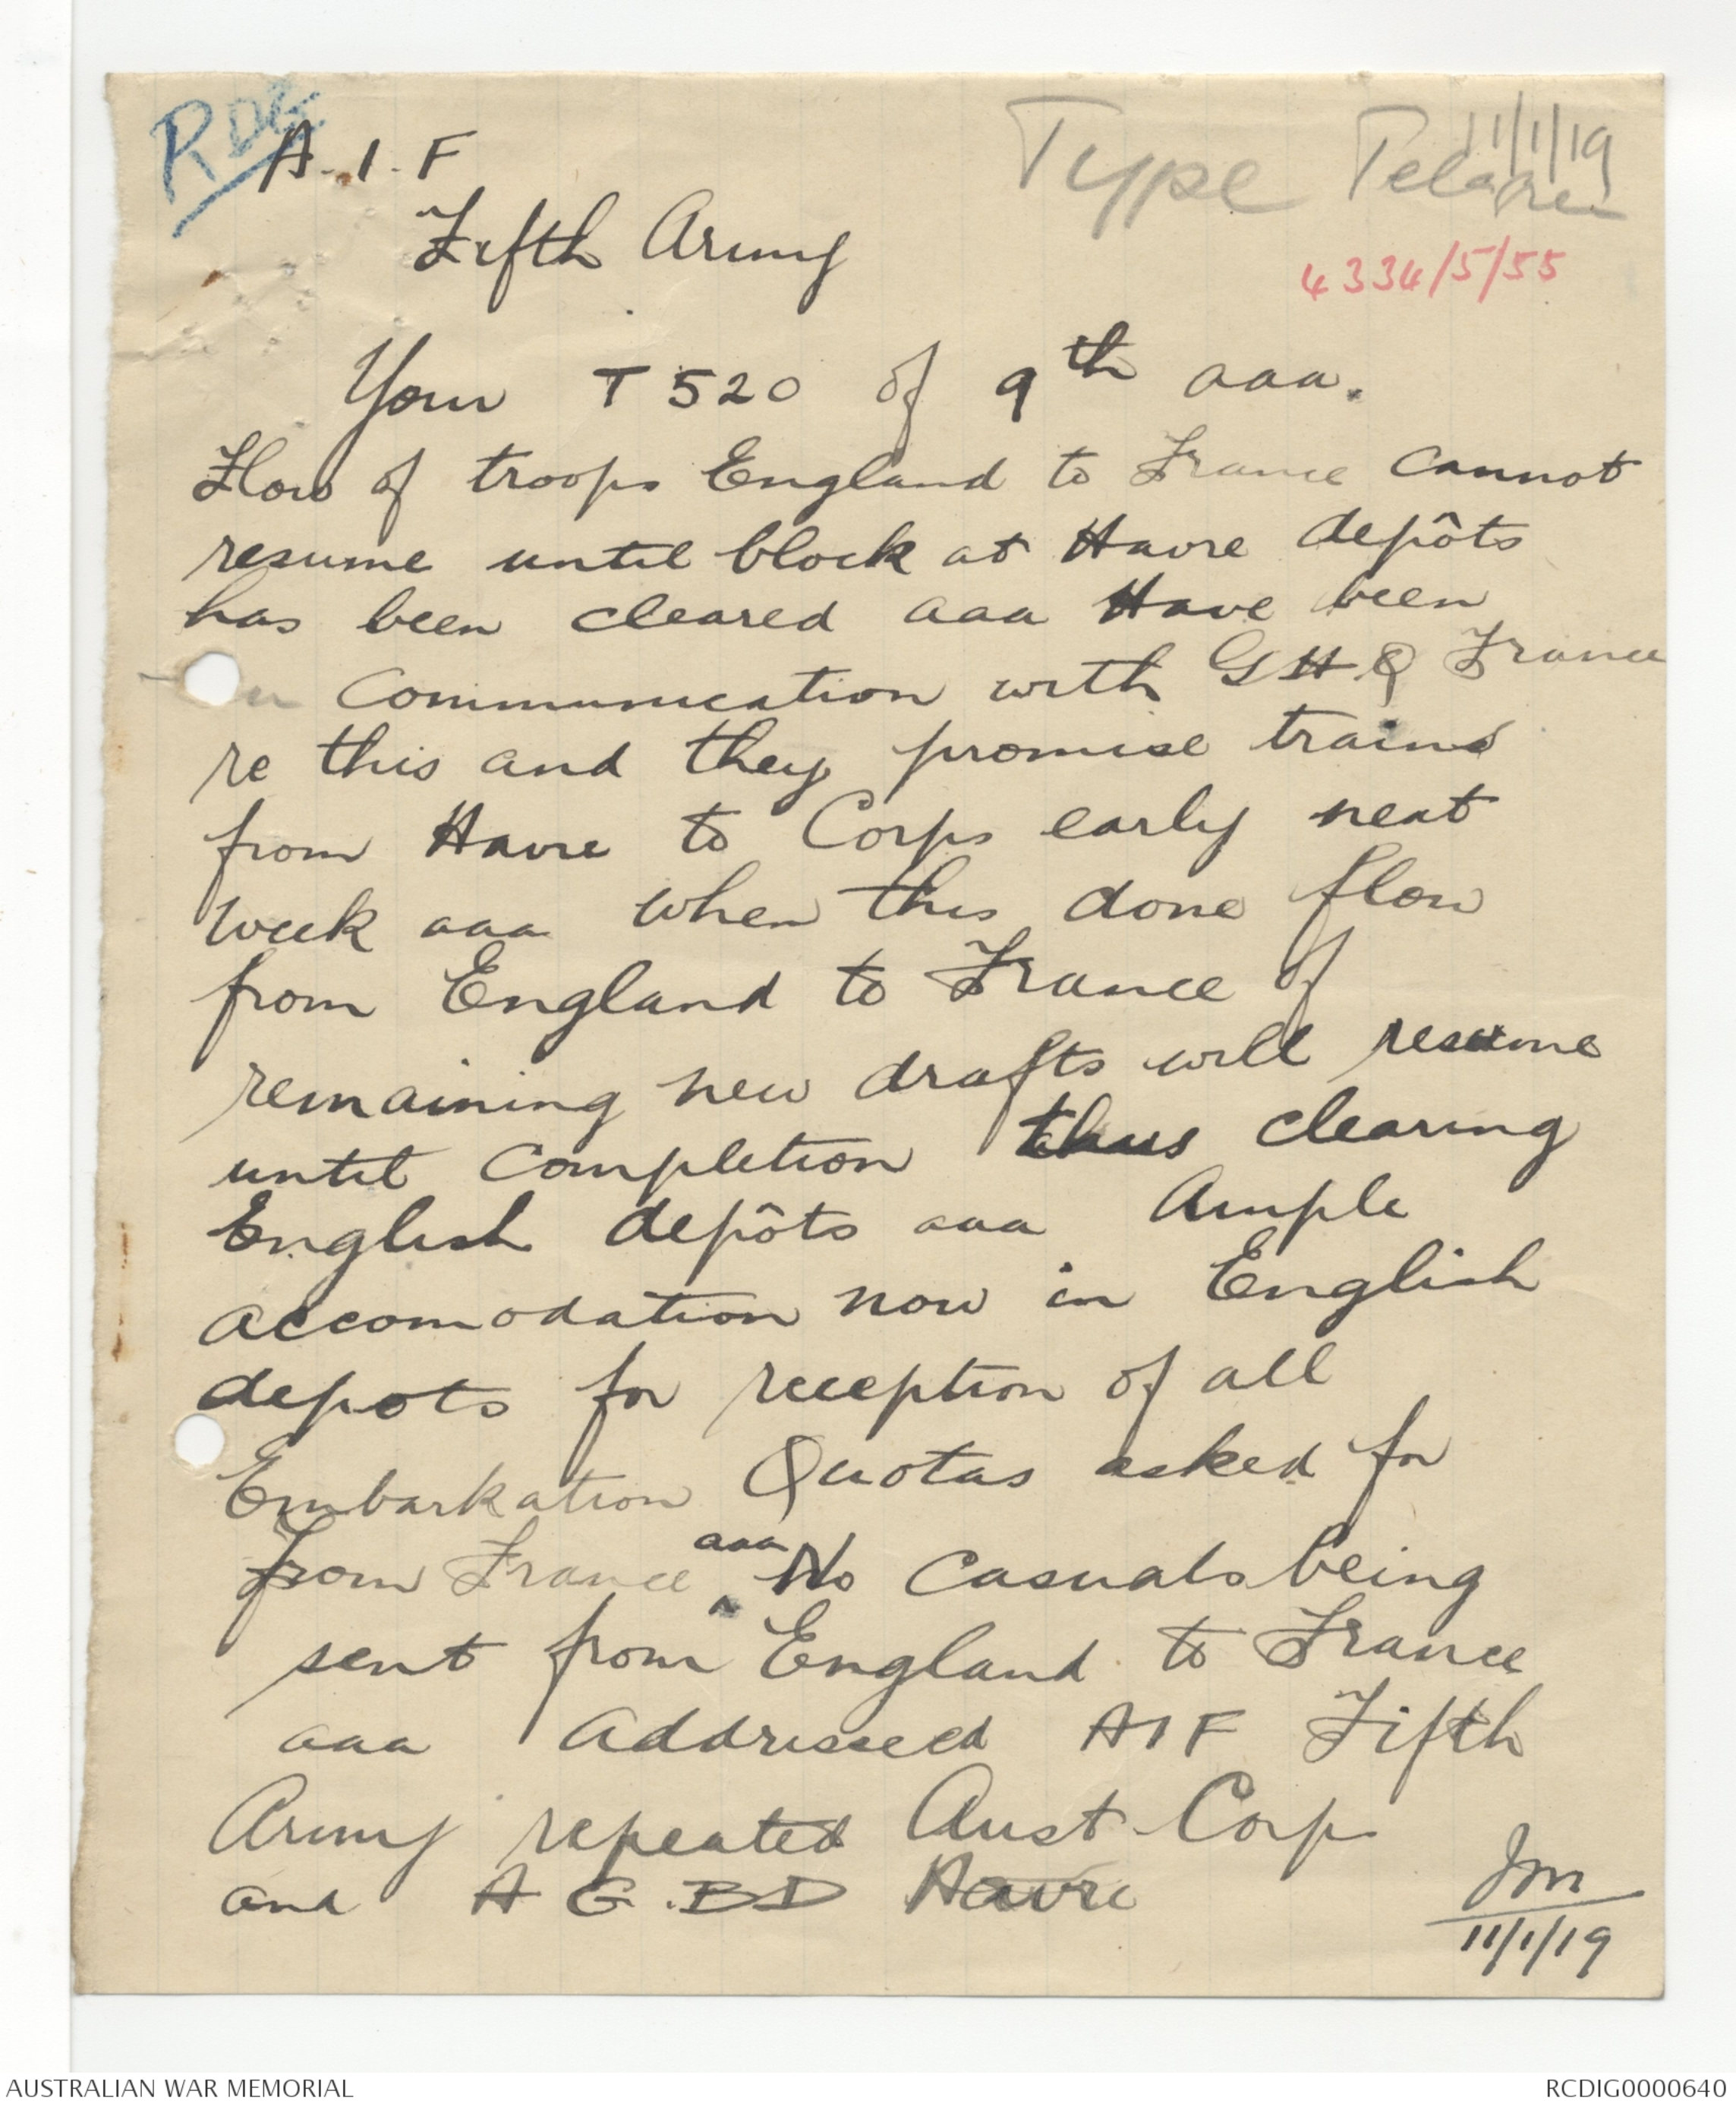 R
A.I.F
Type
11/1/19
Fifth Army
4334/5/55
Your T520 of 9th aaa.
Flow of troops England to France cannot
resume until block at Havre depôts
has been cleared aaa Have been
communication with GHQ France
re this and they promise trains
from Havre to Corps early next
week aaa when this done flow
from England to France of
remaining new drafts will resume
until completion thus clearing
English depôts aaa Ample
accomodation now in English
depots for reception of all
Embarkation Quotas asked for
from France aaa No casuals being
sent from England to France
aaa addressed AIF Fifth
Army repeated Aust Corps
and A G.BD Havre
JM
11/1/19
AUSTRALIAN WAR MEMORIAL
RCDIG0000640